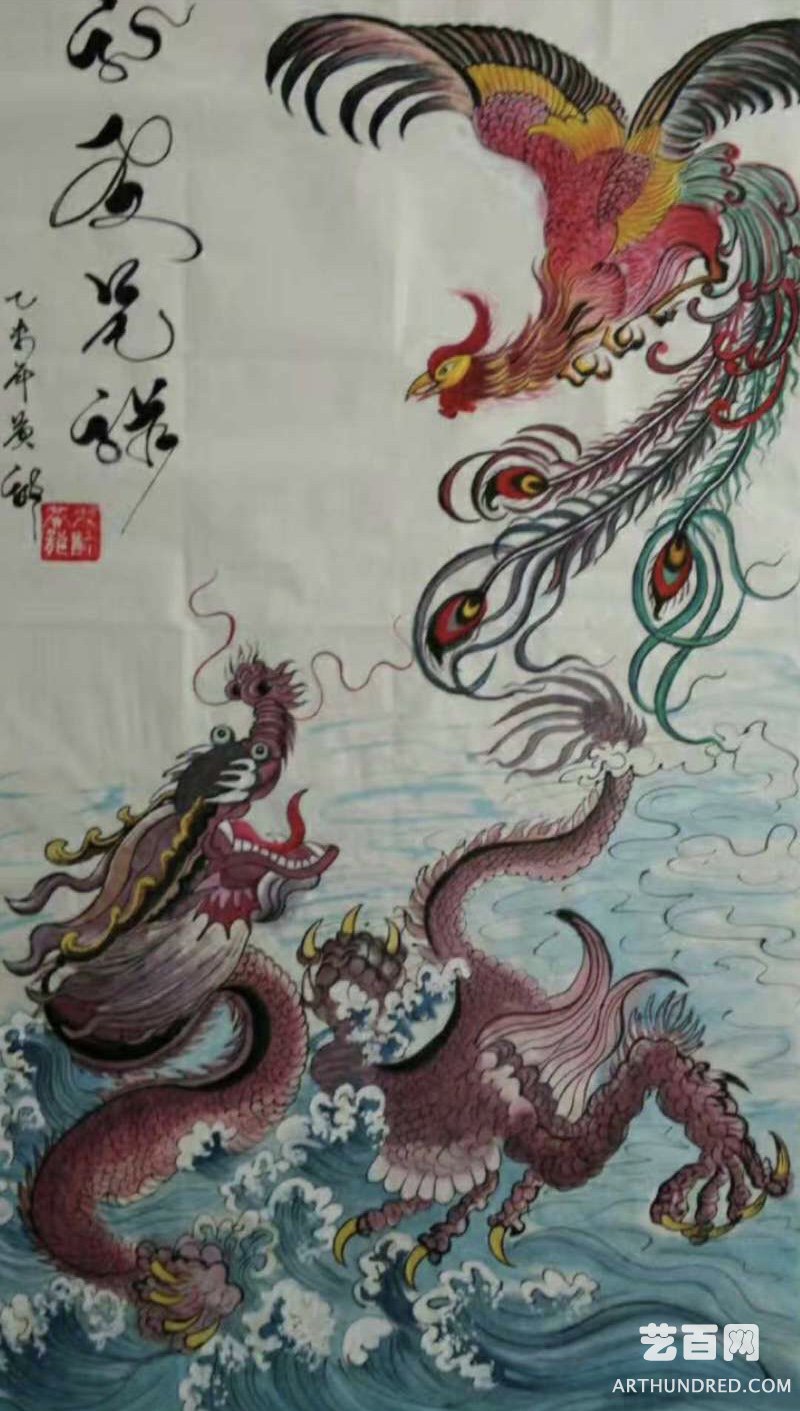 龍鳳呈祥
乙未年黄
艺百网
ARTHUNDRED.COM